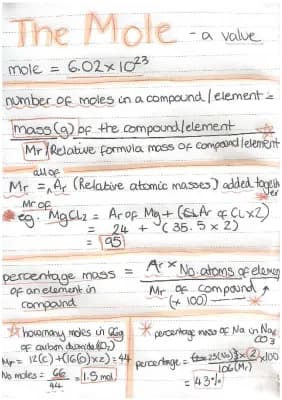 The Mole - a value
mole = 6.02 x 10²³
number of moles in a compound / element =
mass (g) of the compound/element
Mr / Relative formula mass of compound/element
all of
Mr = Ar (Relative atomic masses) added together
Mr of
eg. MgCl₂ = Ar of Mg + (Ar of Cl x 2)
= 24 + (35.5 x 2)
= 95
percentage mass = Ar x No. atoms of element
of an element in
compound
Mr of compound
(x 100)
how many moles in 66g
of carbon dioxide (CO₂)
Mr = 12(C) + (16(O) x 2) = 44
No moles = 66
44
= 1.5 mol
percentage mass of Na in Na₂
CO₃
percentage = 23 (Na) x 2 x 100
106 (Mr)
= 43%